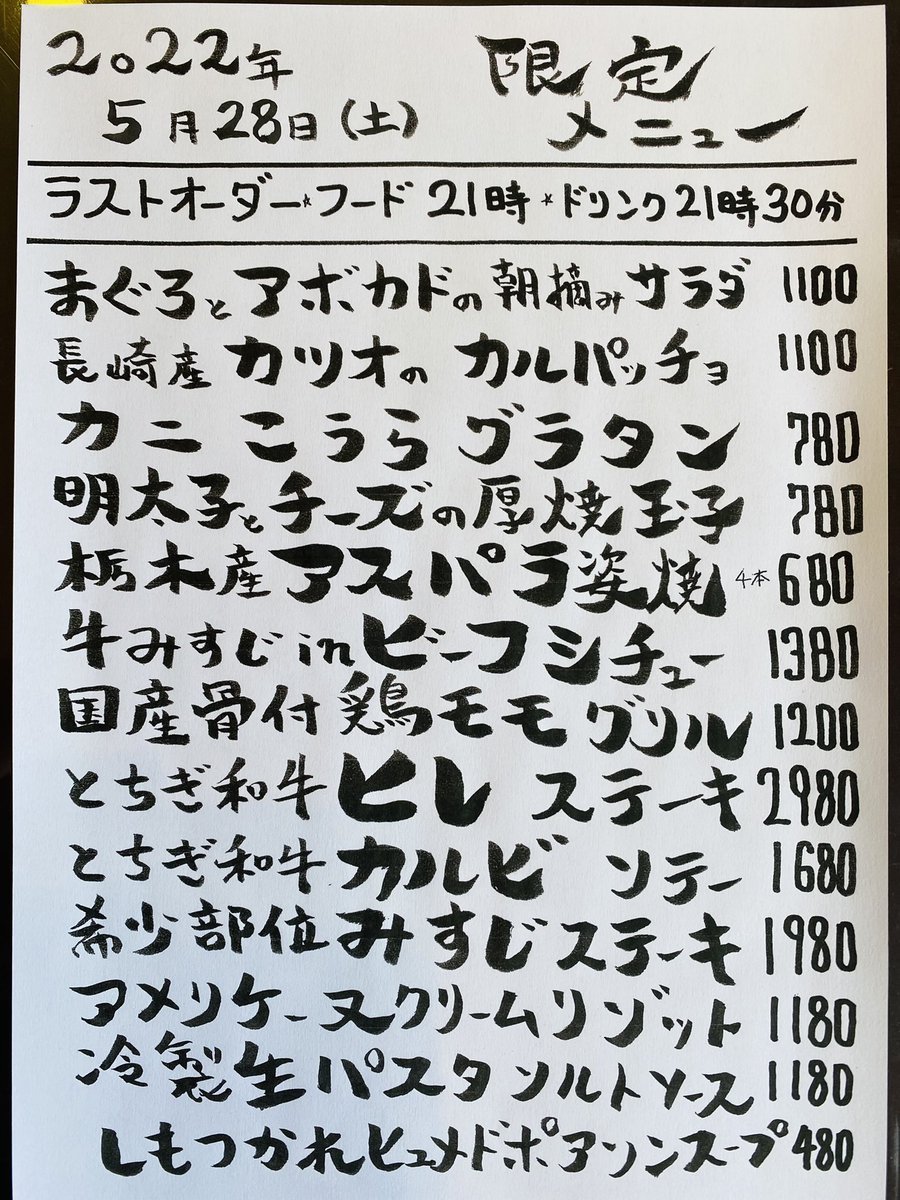 2022年 限定
5月28日(土) メニュー
ラストオーダー☆フード 21時 ☆ドリンク 21時30分
まぐろとアボカドの朝摘みサラダ 1100
長崎産カツオのカルパッチョ 1100
カニこうらグラタン 780
明太子とチーズの厚焼玉子 780
栃木産アスパラ姿焼 4本 680
牛みすじinビーフシチュー 1380
国産骨付鶏モモグリル 1200
とちぎ和牛ヒレステーキ 2980
とちぎ和牛カルビソテー 1680
希少部位みすじステーキ 1980
アメリケーヌクリームリゾット 1180
冷製生パスタソルトソース 1180
しもつかれヒュメドポアソンスープ 480